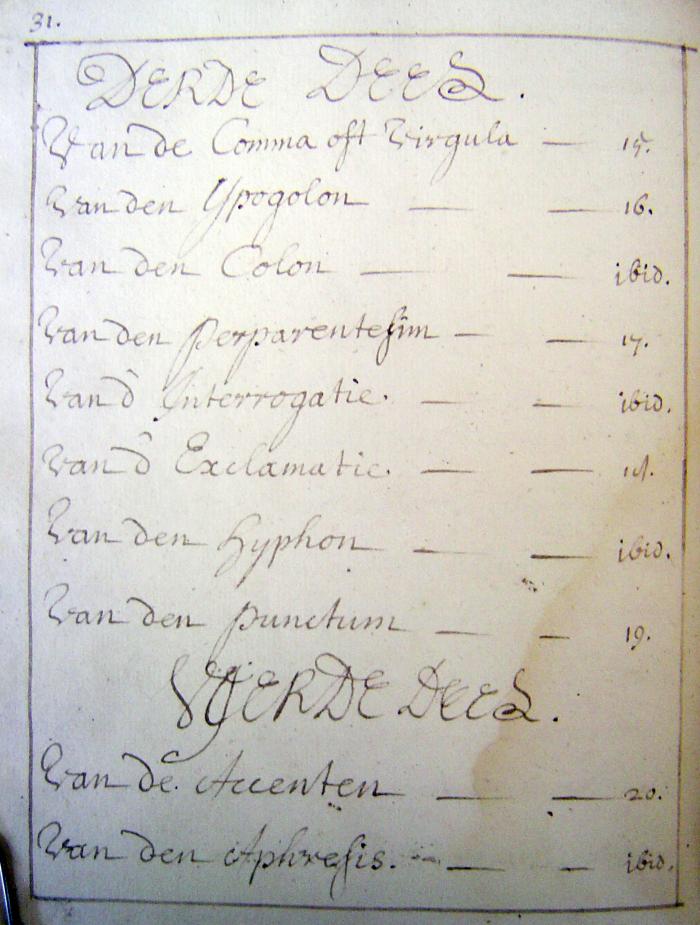 31.
DERDE DEEL.
Van de Comma oft Virgula — 15.
Van den Ypogolon — — 16.
Van den Colon — — ibid.
Van den Perparentesim — — 17.
Van d' Interrogatie. — — ibid.
Van d' Exclamatie. — — 18.
Van den Hyphon — — ibid.
Van den Punctum — — 19.
VYERDE DEEL.
Van de Accenten — — 20.
Van den Aphresis. — — ibid.